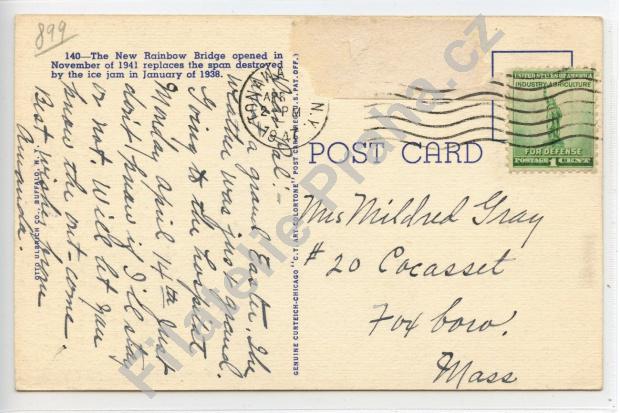 899
140—The New Rainbow Bridge opened in
November of 1941 replaces the span destroyed
by the ice jam in January of 1938.
Dear Pal:-
a grand Easter. The
weather was just grand.
Going to the hospital
Monday april 14th. Just
don't know if I'll stay
or not. Will let you
know the out-come.
Best wishes from
Amanda.
OTTO ULBRICH CO., BUFFALO, N. Y.
GENUINE CURTEICH-CHICAGO "C.T. ART-COLORTONE" POST CARD (REG. U.S. PAT. OFF.)
N.Y.
POST CARD
UNITED STATES OF AMERICA
INDUSTRY AGRICULTURE
FOR DEFENSE
POSTAGE 1 CENT
Mrs Mildred Gray
#20 Cocasset
Foxboro.
Mass
Filatelie Praha.cz